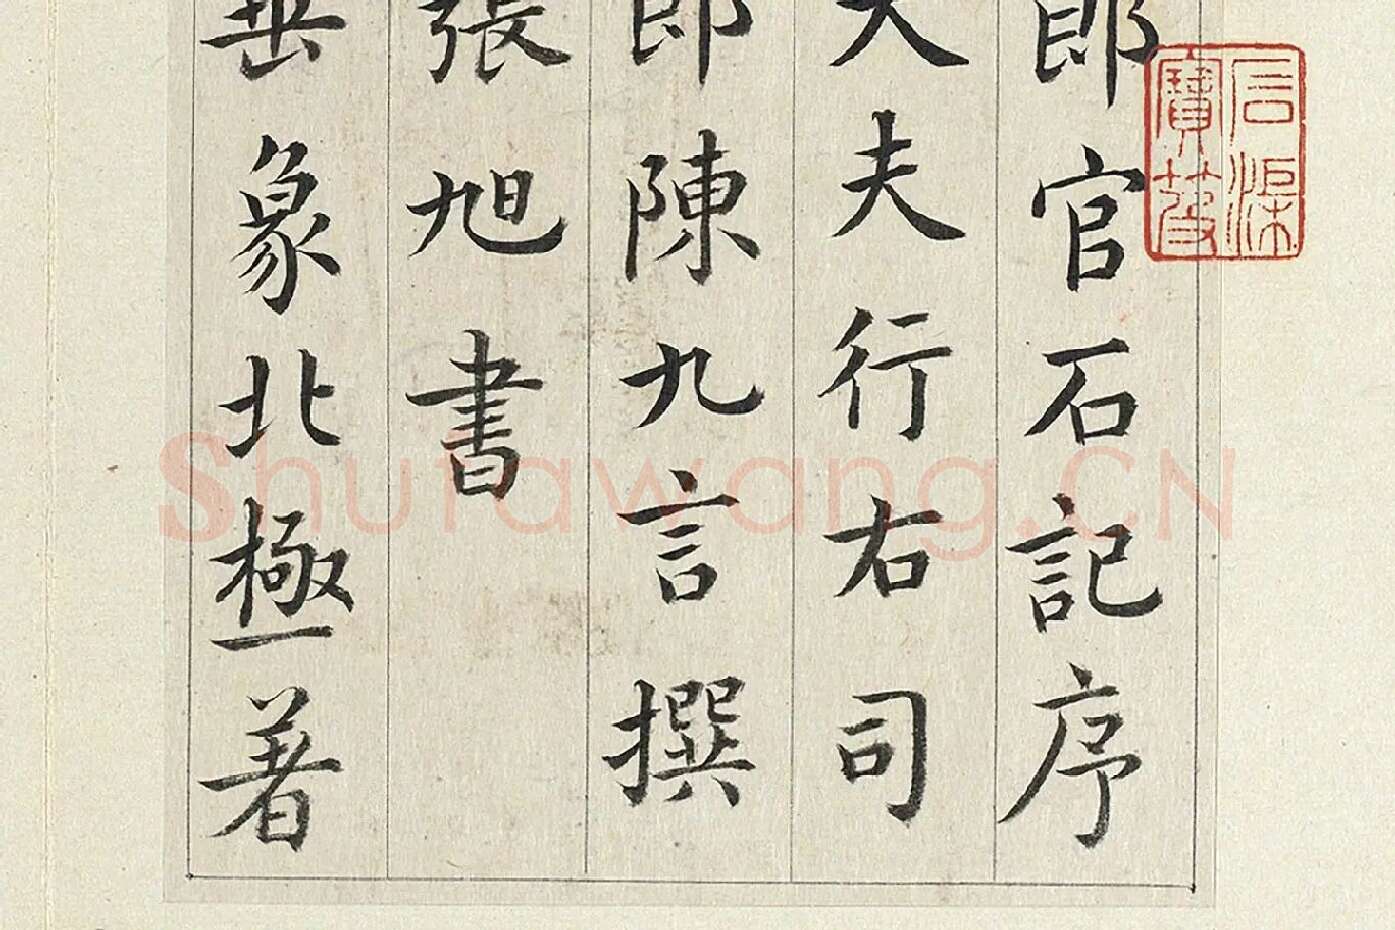 郎官石記序
大夫行右司
郎陳九言撰
張旭書
垂象北極著
石渠寶笈
Shufawang.CN